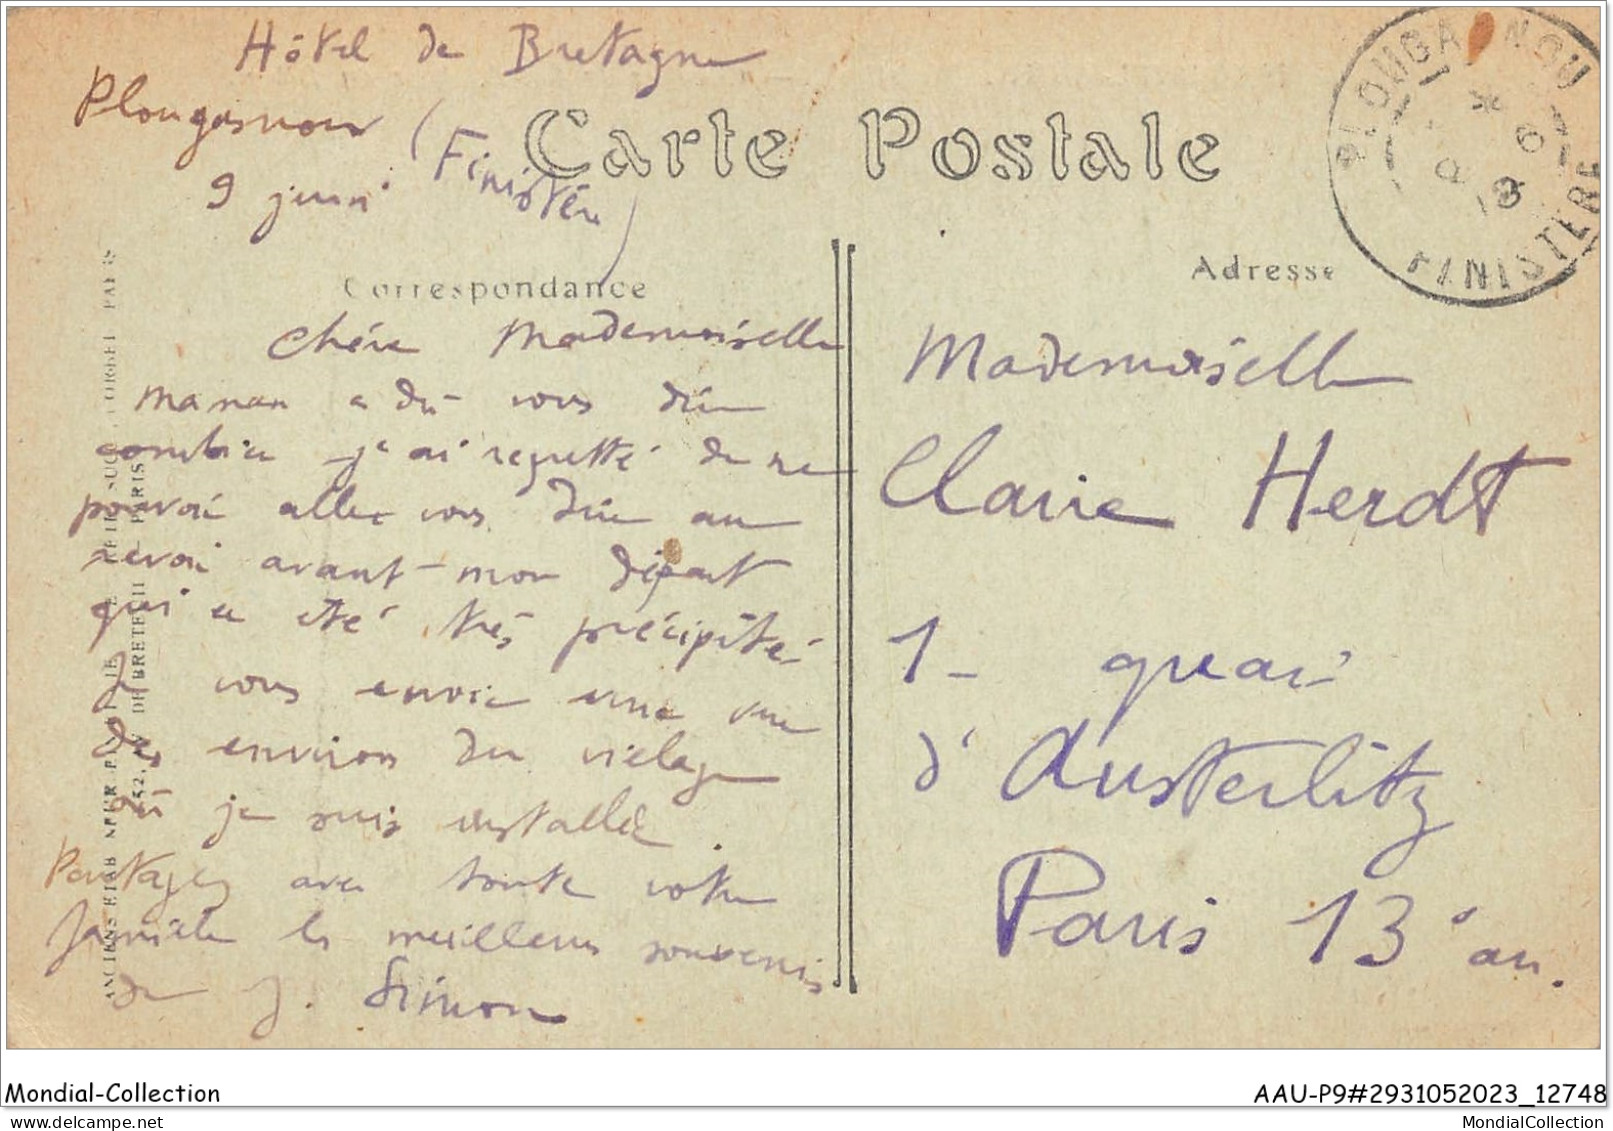 Hôtel de Bretagne
Plougasnou (Finistère)
9 juin
Carte Postale
PLOUGASNOU
FINISTERE
Correspondance
Adresse
Chère Mademoiselle
maman a dû vous dire
combien j'ai regretté de ne
pouvoir aller vous dire au
revoir avant mon départ
qui a été très précipité
Je vous envoie une vue
des environs du village
où je suis installée.
Partagez avec toute votre
famille les meilleurs souvenirs
de J. Simon
Mademoiselle
Claire Herdt
1 - quai
d'Austerlitz
Paris 13e arr.
ANCIENS ETAB
NEURDEIN ET CIE
52, AV. DE BRETEUIL - PARIS
Mondial-Collection
AAU-P9#2931052023_12748
MondialCollection